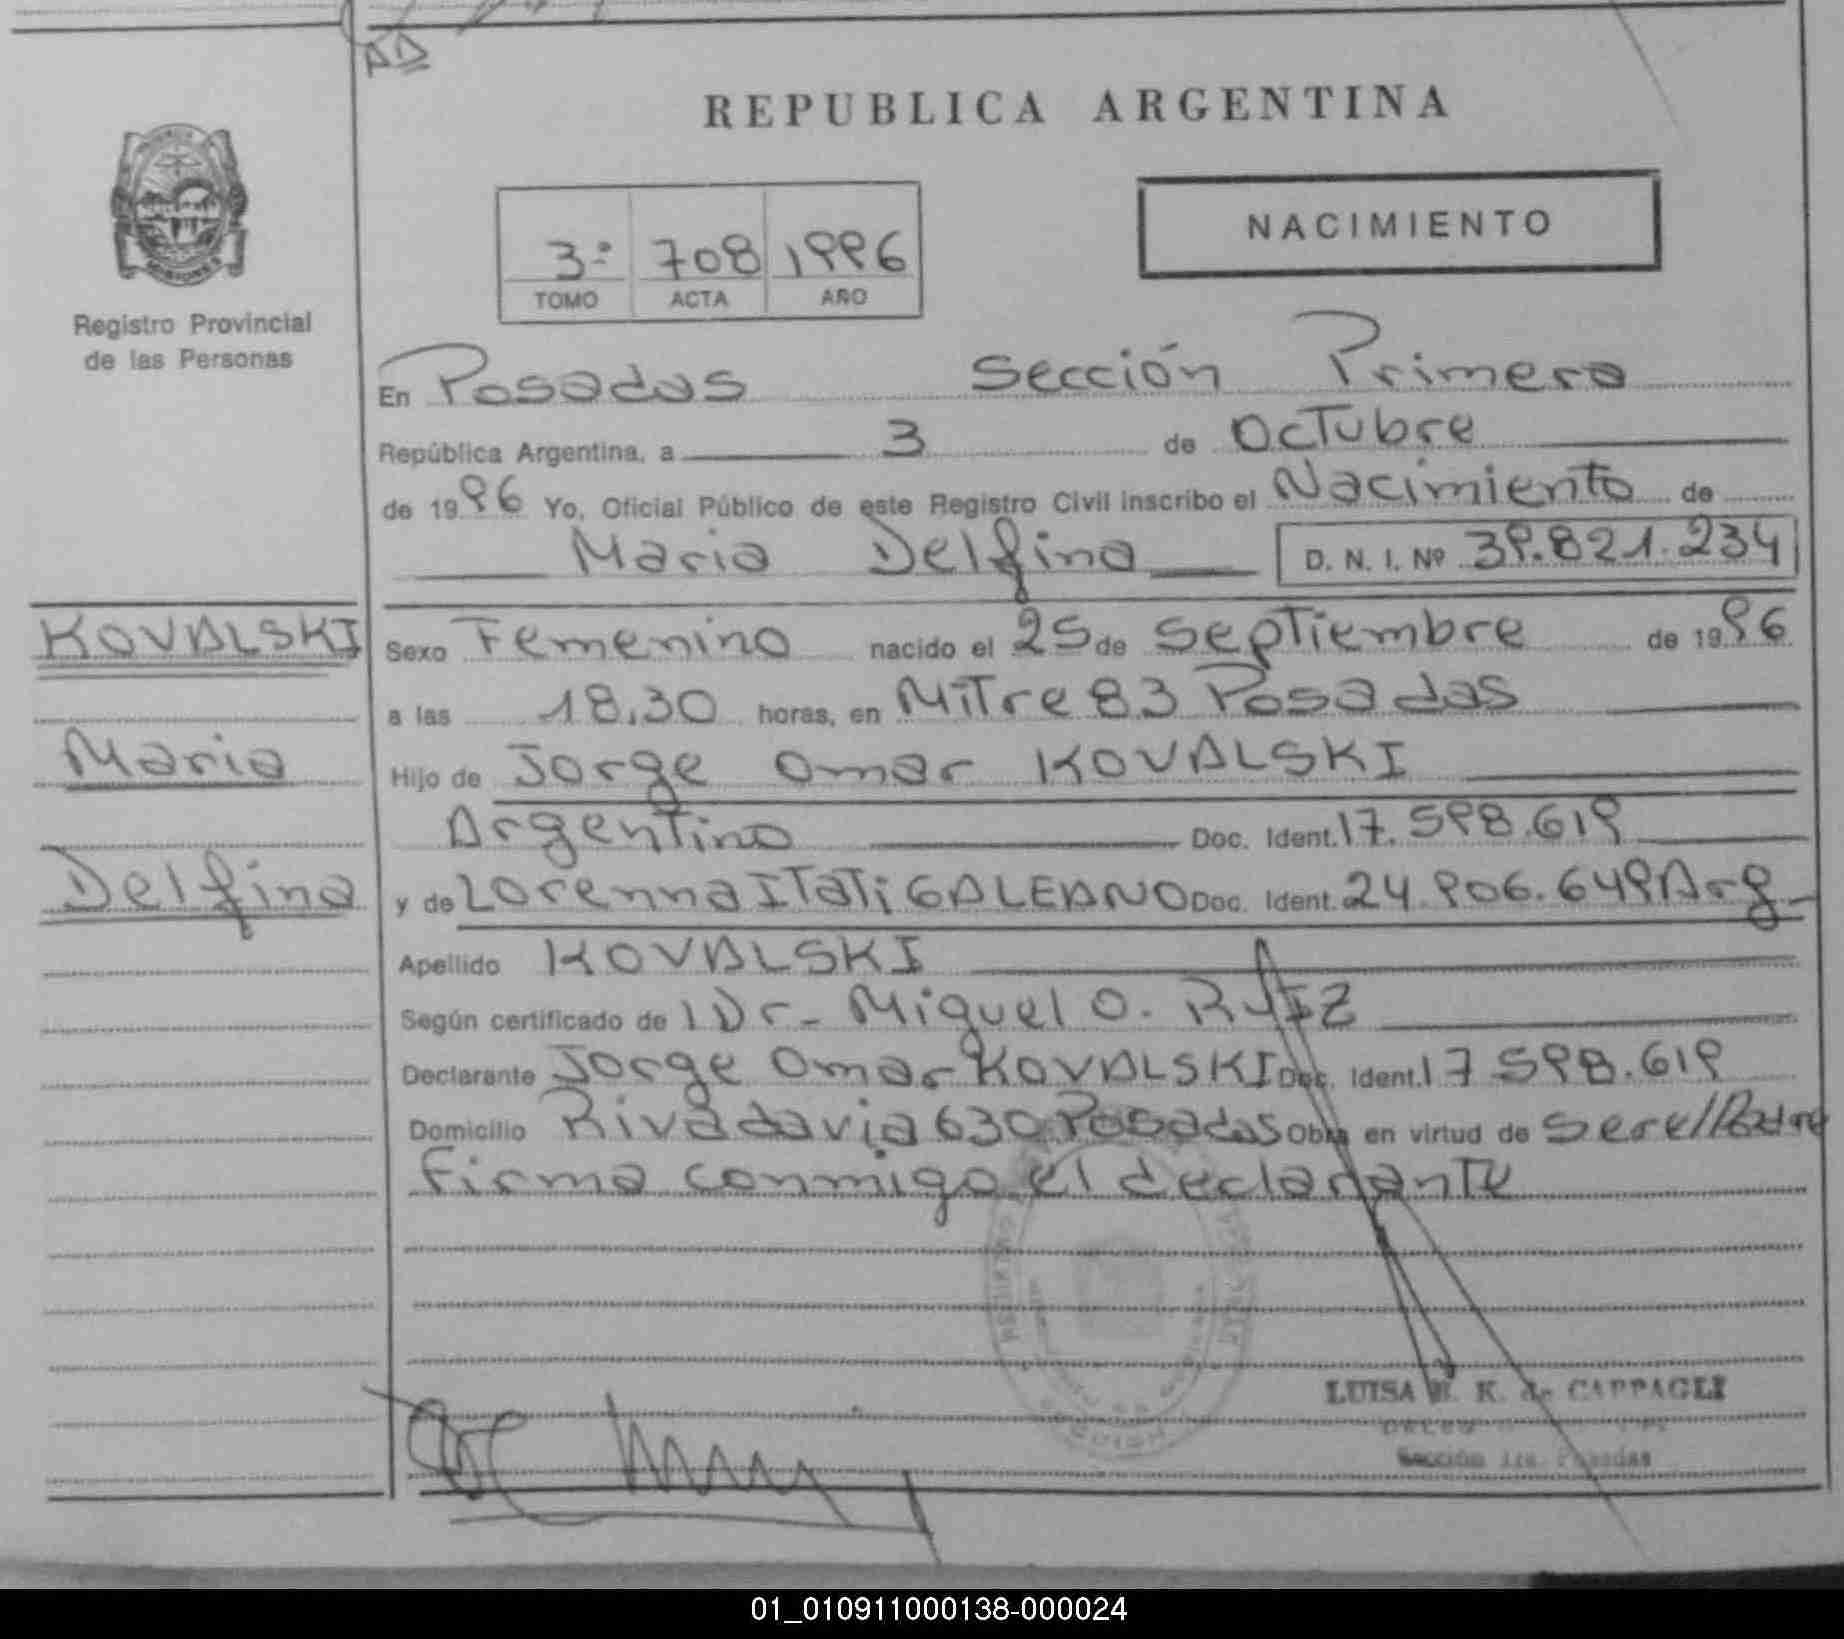 AD
REPUBLICA ARGENTINA
NACIMIENTO
3º 708 1996
TOMO ACTA AÑO
MISIONES
Registro Provincial
de las Personas
En Posadas Sección Primera
República Argentina, a 3 de Octubre
de 1996 Yo, Oficial Público de este Registro Civil inscribo el Nacimiento de
Maria Delfina D. N. I. Nº 39.821.234
KOVALSKI
Maria
Delfina
Sexo Femenino nacido el 25 de Septiembre de 1996
a las 18,30 horas, en Mitre 83 Posadas
Hijo de Jorge Omar KOVALSKI
Argentino Doc. Ident. 17.598.619
y de Lorenna Itati GALEANO Doc. Ident. 24.906.649 Arg.
Apellido KOVALSKI
Según certificado de l Dr. Miguel O. RUIZ
Declarante Jorge Omar KOVALSKI Doc. Ident. 17 598.619
Domicilio Rivadavia 630 Posadas Obra en virtud de Ser el Padre
Firma conmigo el declarante
LUISA K. de CAPPAGLI
Sección 1ra. Posadas
01_010911000138-000024